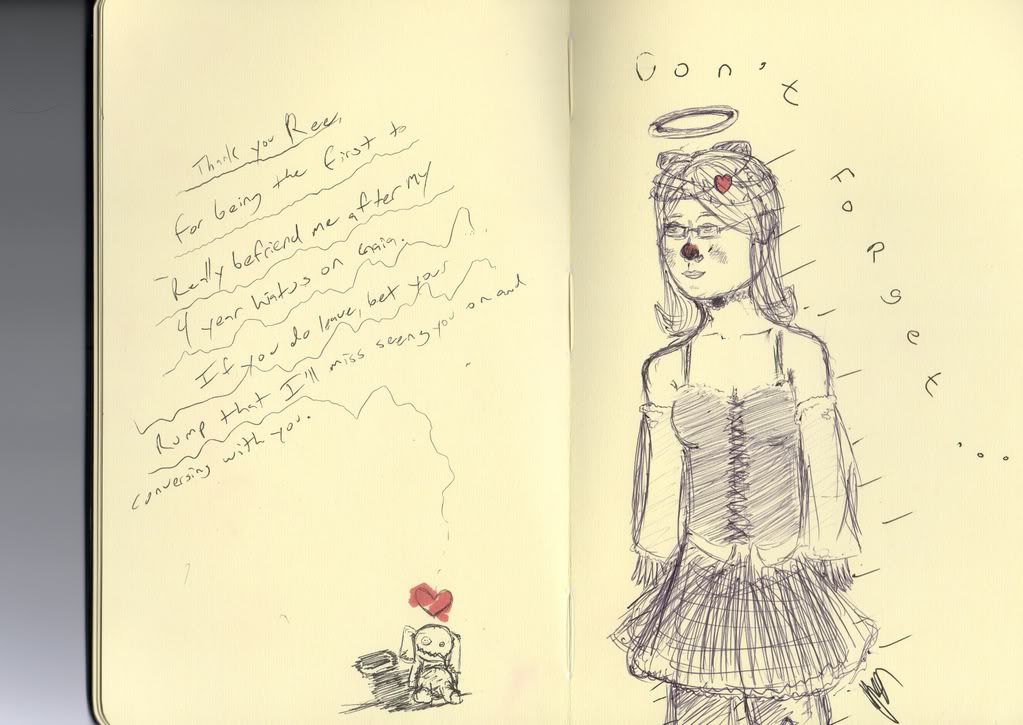 Thank you Reer,
for being the first to
Really befriend me after my
4 year hiatus on Gaia.
If you do leave, bet your
Rump that I'll miss seeing you on and
conversing with you.
Don't
Forget
...